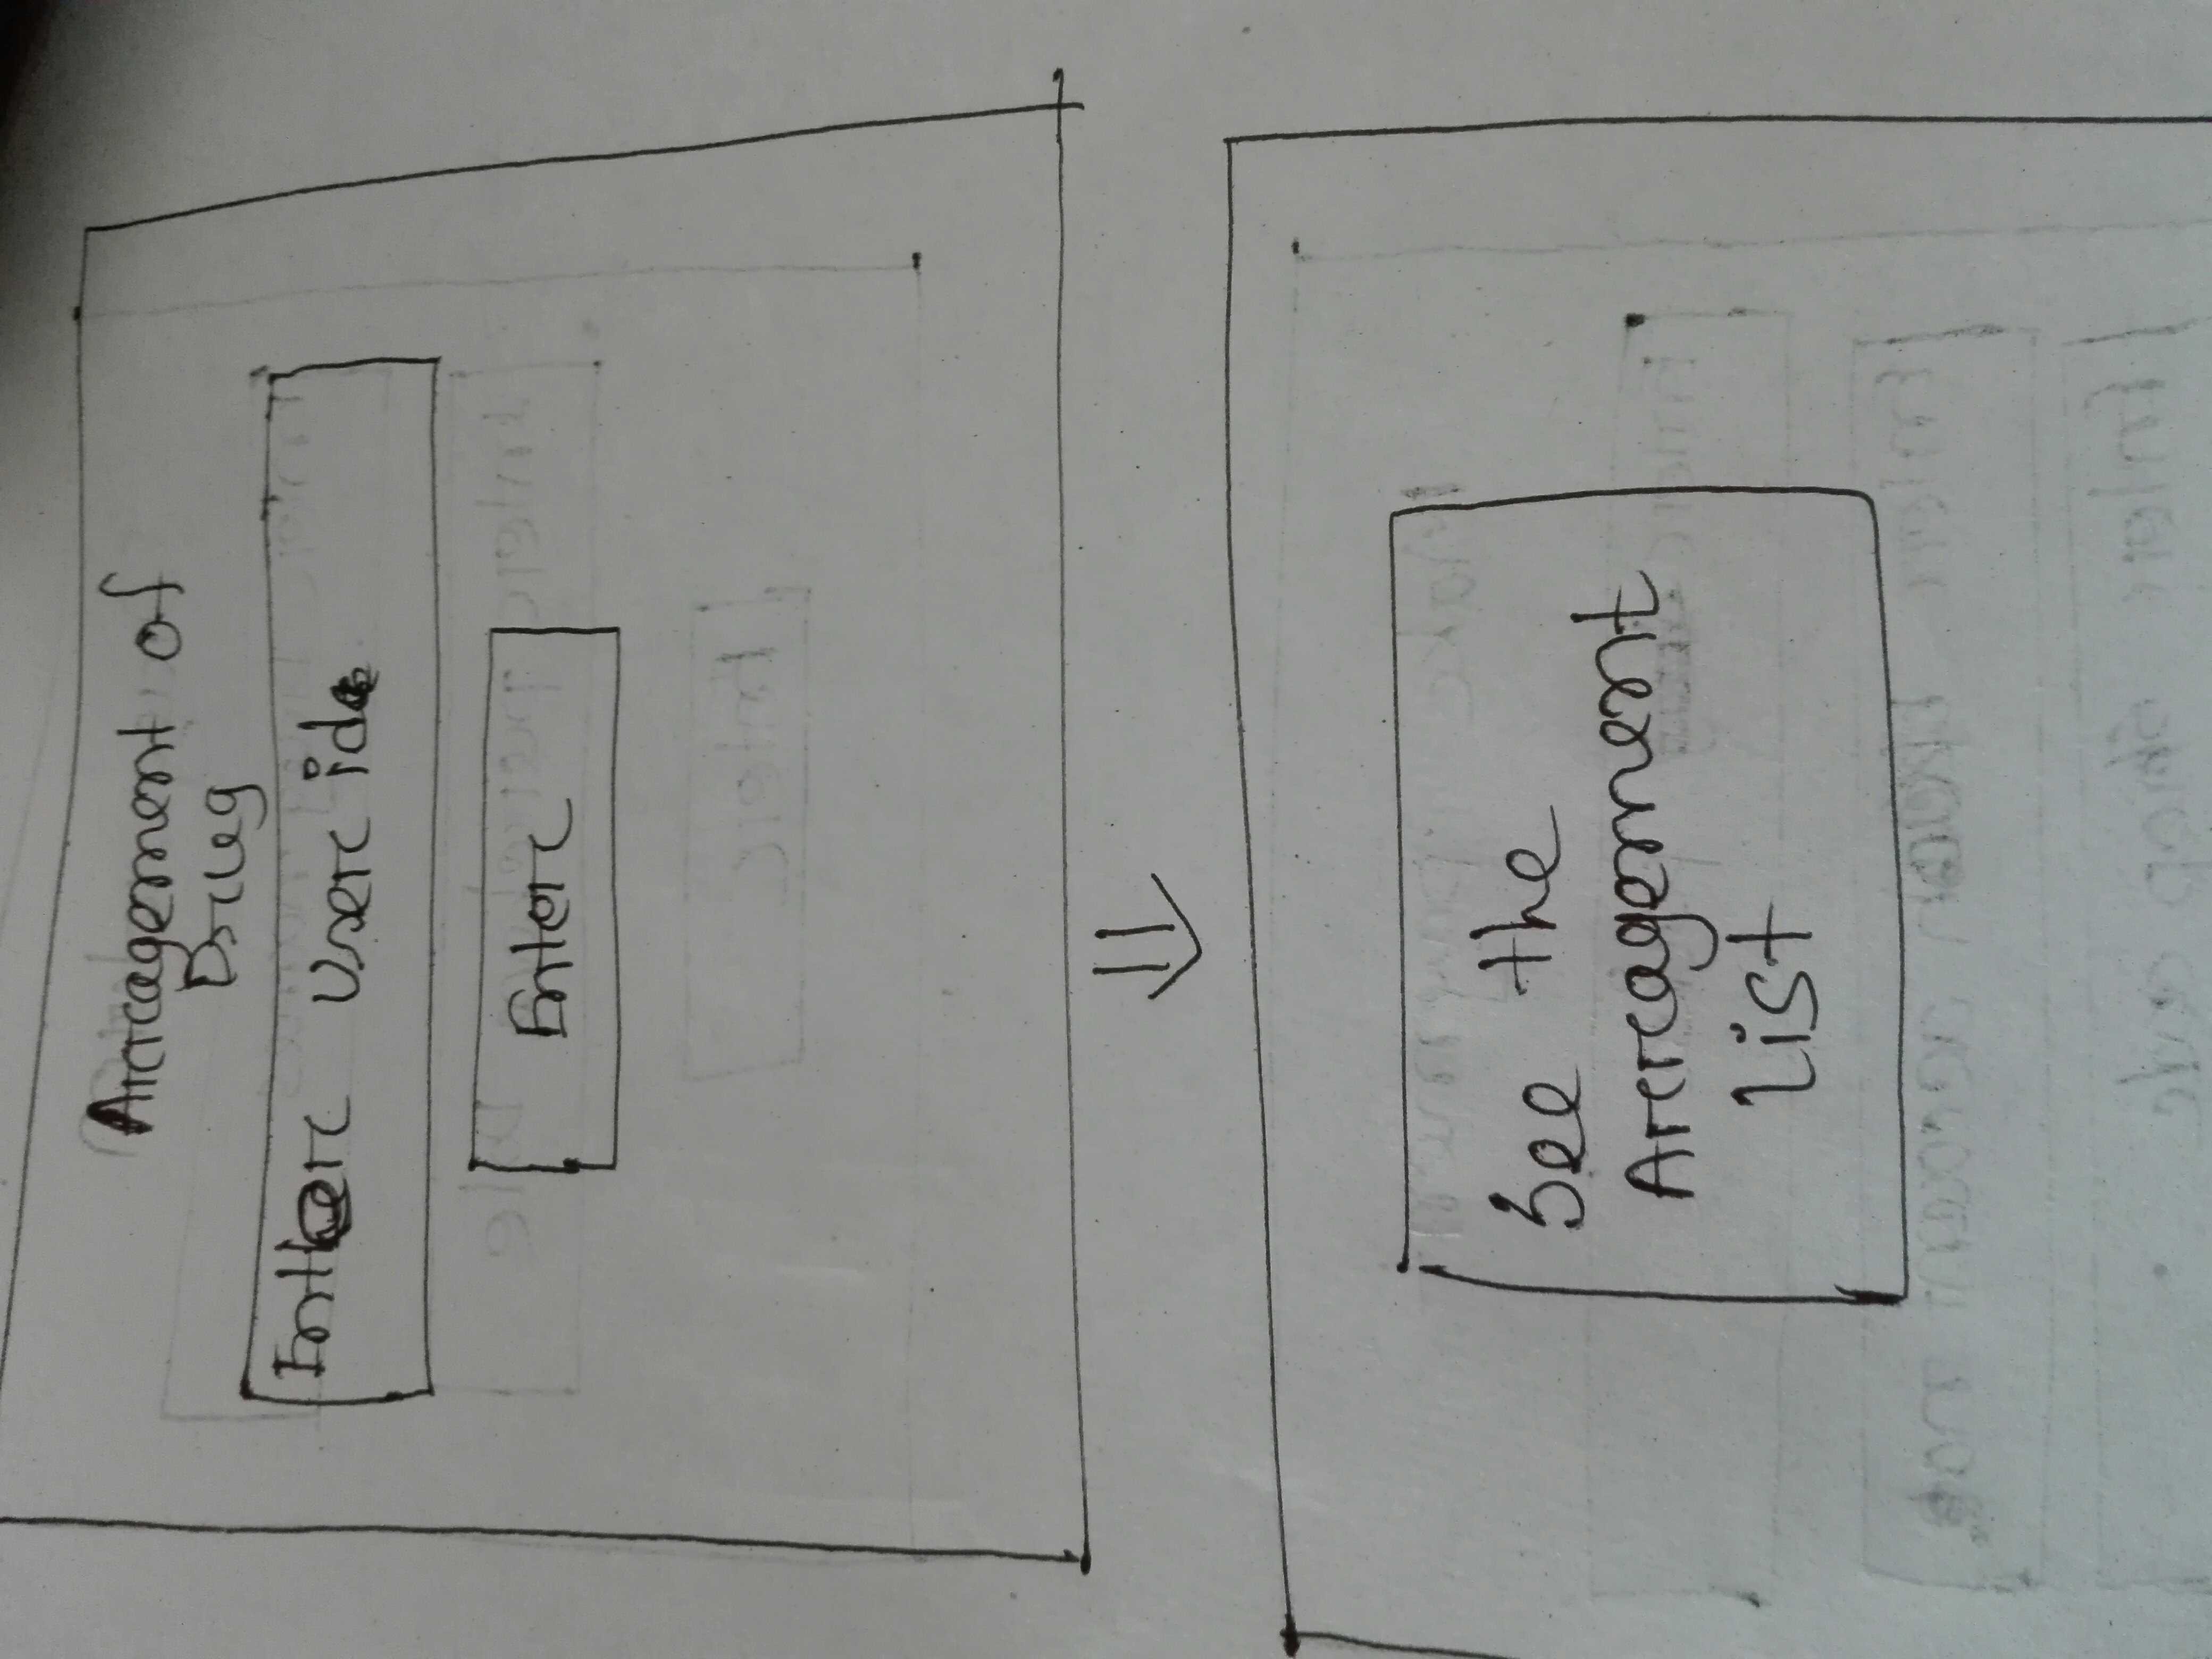 Arragement of
Drug
Enter user id
Enter
See the
Arragement
List